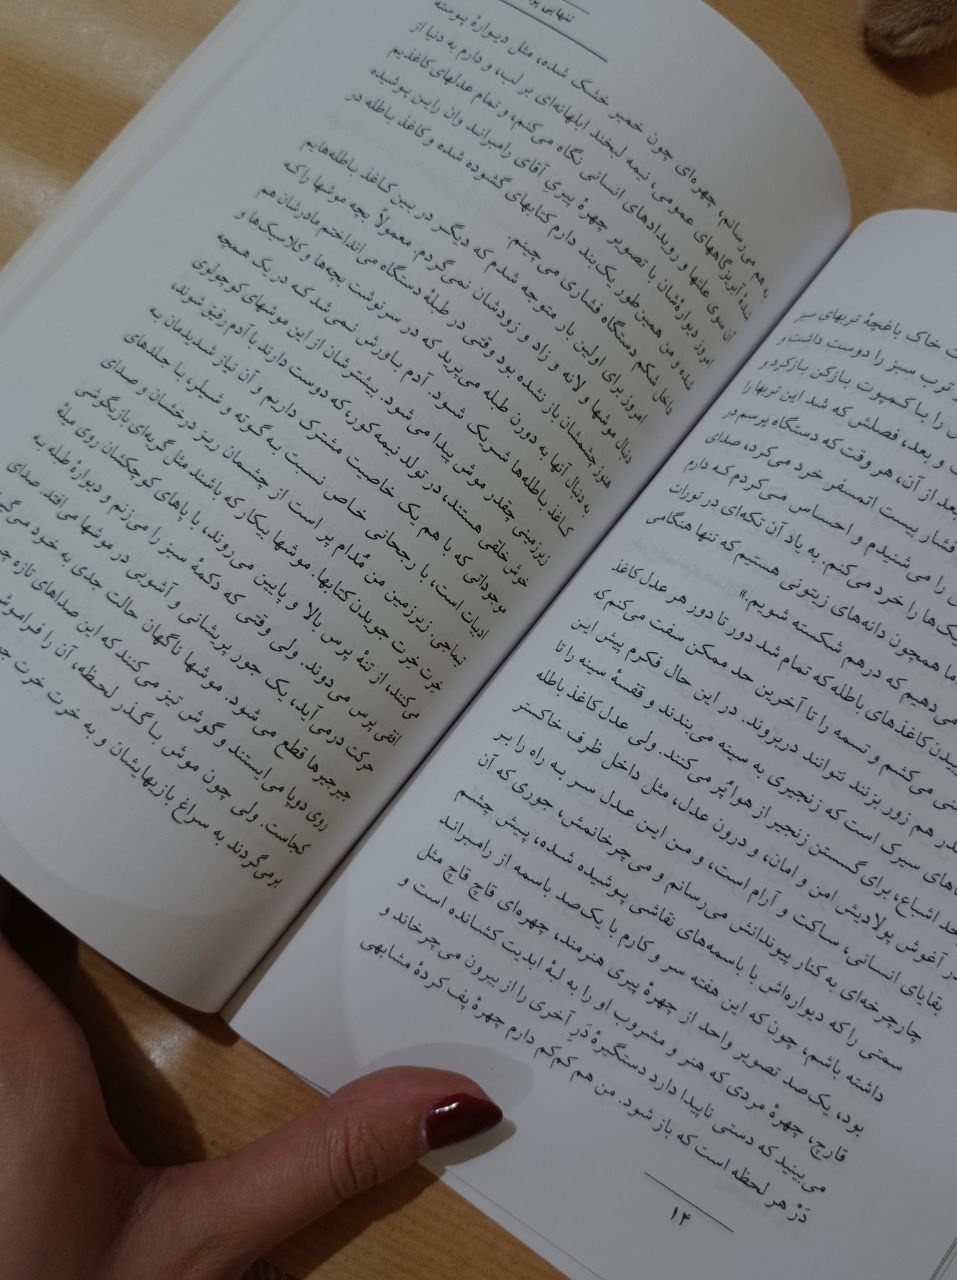 خاک باغچهٔ تربهای سبز
ترب سبز را دوست داشت و
را با کمپوت بازکن باز کرد و
و بعد، فصلش که شد این تربها را
بعد از آن، هر وقت که دستگاه پرسم در
فشار بیست اتمسفر خرد می‌کرد، صدای
را می‌شنیدم و احساس می‌کردم که دارم
را خرد می‌کنم. به یاد آن تکه‌ای در تورات
ما همچون دانه‌های زیتونی هستیم که تنها هنگامی
می‌دهیم که در هم شکسته شویم.»
کاغذهای باطله که تمام شد دور تا دور هر عدل کاغذ
می‌کشم و تسمه را تا آخرین حد ممکن سفت می‌کنم که
هم زور بزنند نتوانند در بروند. در این حال فکرم پیش این
سیرک است که زنجیری به سینه می‌بندند و قفسهٔ سینه را تا
اشباع، برای گسستن زنجیر از هوا پُر می‌کنند. ولی عدل کاغذ باطله
آغوش پولادیش امن و امان، و درون عدل، مثل داخل ظرف خاکستر
بقایای انسانی، ساکت و آرام است، و من این عدل سر به راه را بر
چارچرخه‌ای به کنار پیوندانش می‌رسانم و می‌چرخانمش، جوری که آن
سمتی را که دیواره‌اش با باسمه‌های نقاشی پوشیده شده، پیش چشم
داشته باشم، چون که این هفته سر و کارم با یک‌صد باسمه از رامبراند
بود، یک‌صد تصویر واحد از چهرهٔ پیری هنرمند، چهره‌ای قاچ قاچ مثل
قارچ، چهرهٔ مردی که هنر و مشروب او را به لبهٔ ابدیت کشانده است و
می‌بینید که دستی ناپیدا دارد دستگیرهٔ دَرِ آخری را از بیرون می‌چرخاند و
دَرْ هر لحظه است که باز شود. من هم کم‌کم دارم چهرهٔ پف کردهٔ مشابهی
۱۴
تنهایی
به هم می‌رسانم، چهره‌ای چون خمیر خشک شده، مثل دیوارهٔ پوسته
شدهٔ آبریزگاههای عمومی، نیمه لبخند ابلهانه‌ای بر لب، و دارم به دنیا از
آن سوی علتها و رویدادهای انسانی نگاه می‌کنم، و تمام عدلهای کاغذیم
امروز دیواره‌شان با تصویر چهرهٔ پیری آقای رامبراند وان راین پوشیده
شده و من همین طور یک‌بند دارم کتابهای گشوده شده و کاغذ باطله در
داخل شکم دستگاه فشاری می‌چپنم.
امروز برای اولین بار متوجه شدم که دیگر در بین کاغذ باطله‌هایم
دنبال موشها و لانه و زاد و زودشان نمی‌گردم. معمولاً بچه موشها را که
هنوز چشمشان باز نشده بود وقتی در طبلهٔ دستگاه می‌انداختم مادرشان هم
به دنبال آنها به دورن طبله می‌پرید که در سرنوشت بچه‌ها و کلاسیک‌ها و
کاغذ باطله‌ها شریک شود. آدم باورش نمی‌شد که در یک همچه
زیرزمینی چقدر موش پیدا می‌شود. بیشترشان از این موشهای کوچولوی
خوش خلقی هستند، در تولد نیمه کورند، که دوست دارند با آدم رفیق شوند،
موجوداتی که با هم یک خاصیت مشترک داریم و آن نیاز شدیدمان به
ادبیات است، با رجحانی خاص نسبت به گوته و شیلر، با جلدهای
تیماجی. زیرزمین من مُدام پر است از چشمان ریز درخشان و صدای
خِرت خِرت جویدن کتابها. موشها بیکار که باشند مثل گربه‌های بازیگوشی
می‌کنند، از تنهٔ پرس بالا و پایین می‌روند، با پاهای کوچکشان روی میلهٔ
افقی پرس می‌دوند. ولی وقتی که دکمهٔ سبز را می‌زنم و دیوارهٔ طبله به
حرکت درمی‌آید، یک جور پریشانی و آشوبی در موشها می‌افتد. صدای
جیرجیرها قطع می‌شود. موشها ناگهان حالت جدی به خود می‌گیرند
روی دو پا می‌ایستند و گوش تیز می‌کنند که این صداهای تازه
کجاست. ولی چون موش با گذر لحظه، آن را
برمی‌گردند به سراغ بازیهایشان و به خرت خرت